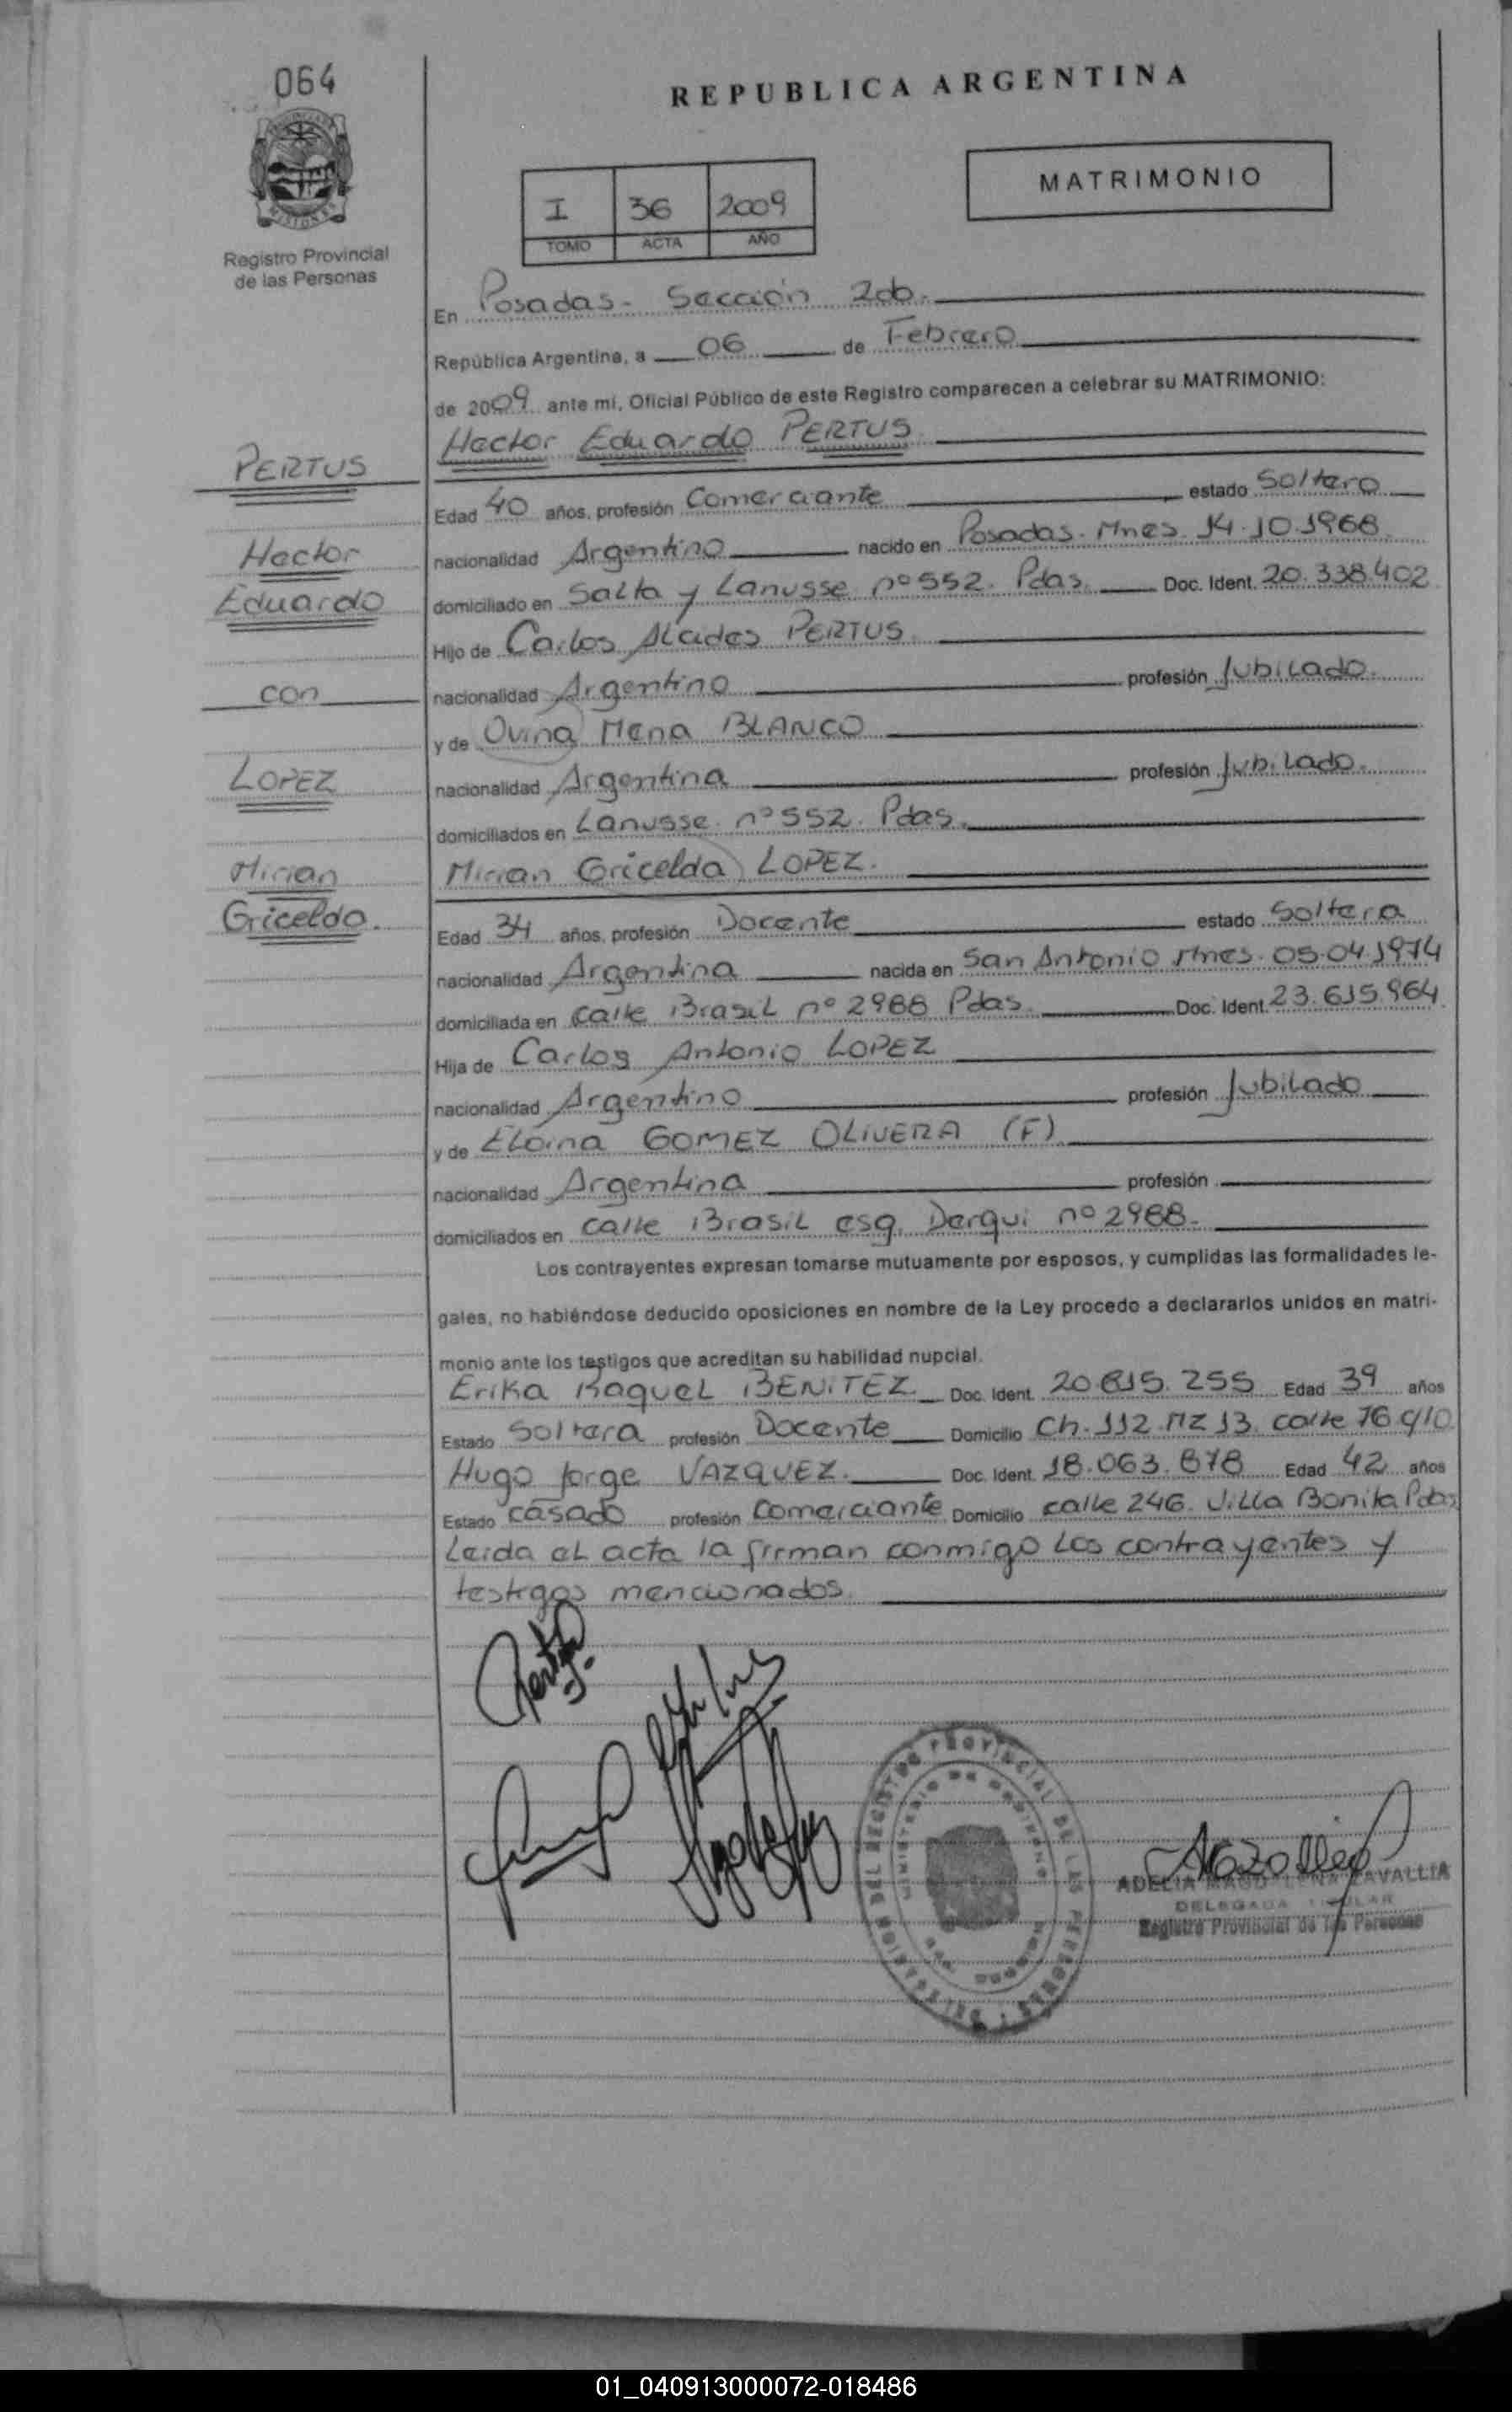 064
REPUBLICA ARGENTINA
I 36 2009
TOMO ACTA AÑO
MATRIMONIO
Registro Provincial
de las Personas
En Posadas - Sección 2da.
República Argentina, a 06 de Febrero
de 2009 ante mí, Oficial Público de este Registro comparecen a celebrar su MATRIMONIO:
PERTUS
Hector Eduardo PERTUS
Edad 40 años, profesión Comerciante estado Soltero
Hector
nacionalidad Argentino nacido en Posadas. Mnes. 14.10.1968
Eduardo
domiciliado en Salta y Lanusse nº 552. Pdas. Doc. Ident. 20.338.402
Hijo de Carlos Alcides PERTUS
con
nacionalidad Argentino profesión Jubilado.
y de Ovina Mena BLANCO
LOPEZ
nacionalidad Argentina profesión Jubilado.
domiciliados en Lanusse nº 552. Pdas.
Mirian
Mirian Gricelda LOPEZ.
Gricelda.
Edad 34 años, profesión Docente estado Soltera
nacionalidad Argentina nacida en San Antonio Mnes. 05.04.1974
domiciliada en calle Brasil nº 2988 Pdas. Doc. Ident. 23.615.964
Hija de Carlos Antonio LOPEZ
nacionalidad Argentino profesión Jubilado
y de Eloina GOMEZ OLIVERA (F)
nacionalidad Argentina profesión
domiciliados en calle Brasil esq. Derqui nº 2988.
Los contrayentes expresan tomarse mutuamente por esposos, y cumplidas las formalidades le-
gales, no habiéndose deducido oposiciones en nombre de la Ley procedo a declararlos unidos en matri-
monio ante los testigos que acreditan su habilidad nupcial.
Erika Raquel BENITEZ Doc. Ident. 20.815.255 Edad 39 años
Estado Soltera profesión Docente Domicilio Ch. 112 MZ 13 calle 76 c/10
Hugo Jorge VAZQUEZ. Doc. Ident. 18.063.878 Edad 42 años
Estado casado profesión comerciante Domicilio calle 246. Villa Bonita Pdas
Leida el acta la firman conmigo los contrayentes y
testigos mencionados.
REGISTRO PROVINCIAL DE LAS PERSONAS
ADELIA MAGDALENA ZAVALLIA
DELEGADA TITULAR
Registro Provincial de las Personas
01_040913000072-018486